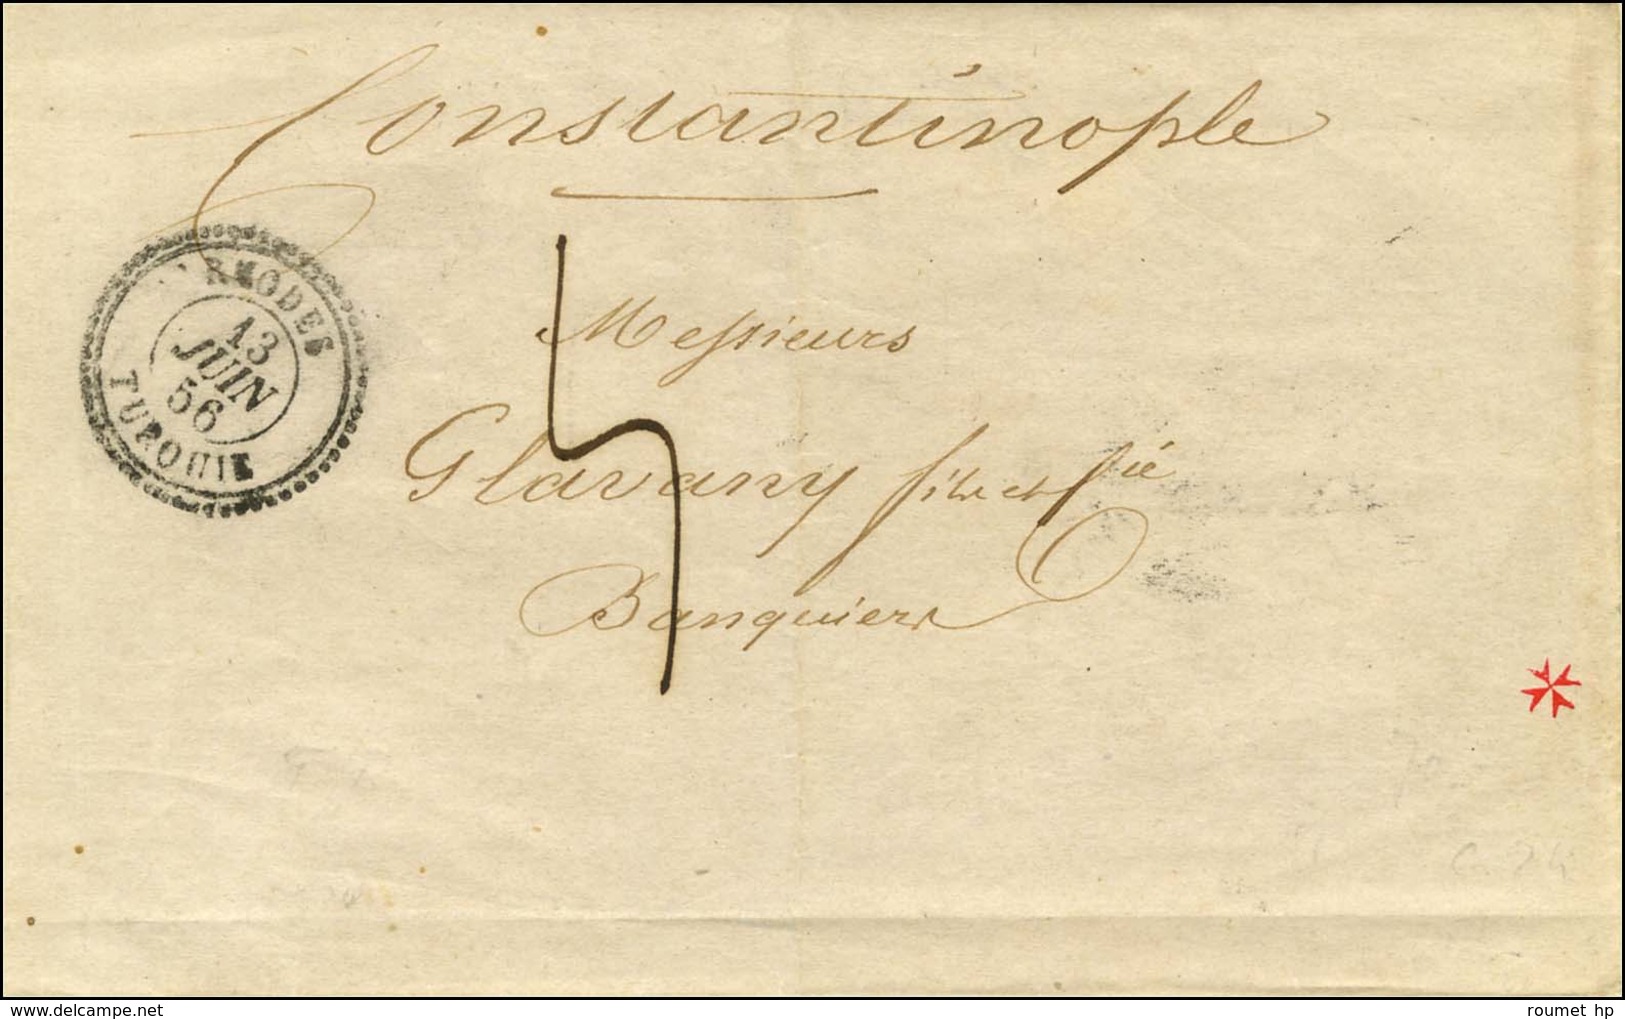 Constantinople
RHODES
13
JUIN
56
TURQUIE
5
Messieurs
Glavany fils et Cie
Banquiers
www.delcampe.net
roumet hp